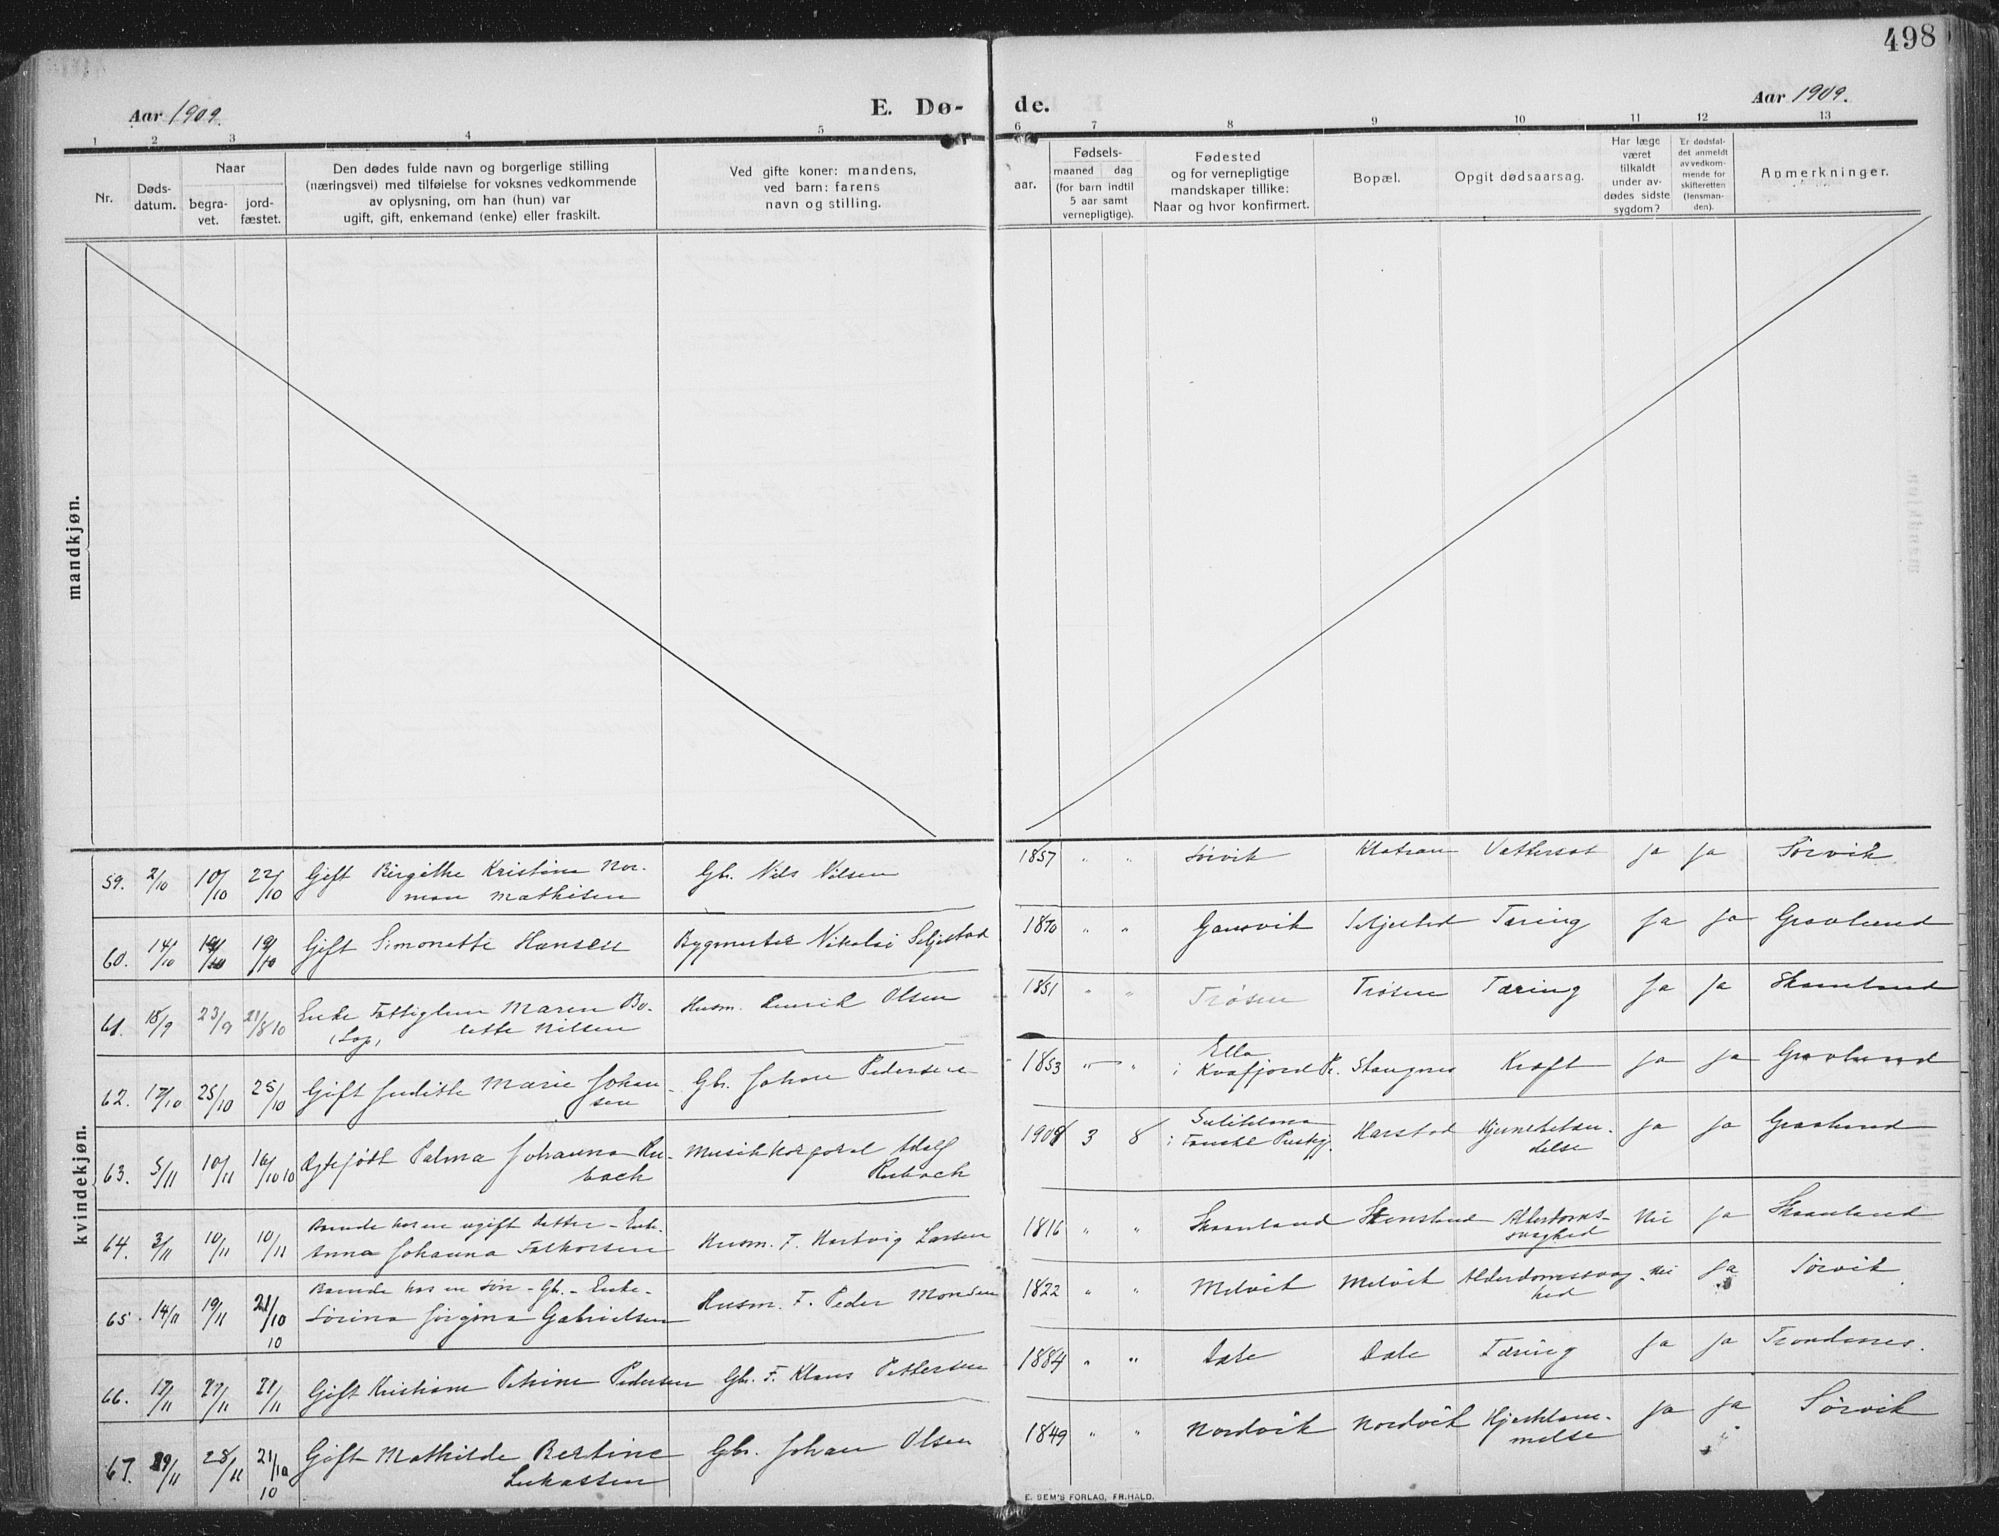 498
Aar 1909.
E. Dø-
de.
Aar 1909.
1 2 3 4 5 6 7 8 9 10 11 12 13
Nr.
Døds-
datum.
Naar
begra-
vet.
jord-
fæstet.
Den dødes fulde navn og borgerlige stilling
(næringsvei) med tilføielse for voksnes vedkommende
av oplysning, om han (hun) var
ugift, gift, enkemand (enke) eller fraskilt.
Ved gifte koner: mandens,
ved barn: farens
navn og stilling.
aar.
Fødsels-
maaned dag
(for barn indtil
5 aar samt
vernepligtige).
Fødested
og for vernepligtige
mandskaper tillike:
Naar og hvor konfirmert.
Bopæl.
Opgit dødsaarsag.
Har læge
været
tilkaldt
under av-
dødes sidste
sygdom?
Er dødsfal-
det anmeldt
av vedkom-
mende for
skifteretten
(lensman-
den).
Anmerkninger.
mandkjøn.
kvindekjøn.
59. 2/10 10/10 22/10 Gift Birgithe Kristine Nor- Gbr. Nils Nilsen 1857 " " Sørvik Ja Ja Sørvik
man Mathisen
60. 14/10 19/10 19/10 Gift Simonette Hansen Bygmester Nikolai Seljestad 1870 " " Gansvik Seljestad Tæring Ja Ja Gravlund
61. 18/9 23/9 21/8 10 Enke Fattiglem Maren Bo- Husm. Henrik Olsen 1851 " " Trøsen Trøsen Tæring Ja Ja Skaanland
(Lap) lette Nilsen
62. 17/10 25/10 25/10 Gift Juditte Marie Johan- Gbr. Johan Pedersen 1853 " " Kvæfjord Pr. Stangnes Kræft Ja Ja Gravlund
sen
63. 5/11 10/11 16/10 10 Ægtefødt Palma Johanna Ru- Musikkorporal Adolf 1908 3 8 Sulitelma Harstad Hjernebetæn- Ja Ja Gravlund
back Ruback i Fauske Præstgj. delse
64. 3/11 10/11 10/11 Boende hos en ugift datter - Enke- Husm. F. Hartvig Larsen 1816 " " Skaanland Stensland Alderdoms- Nei Ja Skaanland
Anna Johanna Falkorsen svaghed
65. 14/11 19/11 21/10 10 Boende hos en søn - Gb. - Enke- Husm. F. Peder Monsen 1822 " " Melvik Melvik Alderdomssvag- Nei Ja Sørvik
Sørina Jørgina Gabrielsen hed
66. 17/11 27/11 27/11 Gift Kristiane Petrine Pedersen Gbr. F. Klaus Pettersen 1884 " " Dale Dale Tæring Ja Ja Trondenes.
67. 19/11 28/11 21/10 10 Gift Mathilde Bertine Gbr. Johan Olsen 1849 " " Nordvik Nordvik Hjertelam- Ja Ja Sørvik
Lukassen melse
E. SEM'S FORLAG, FR.HALD.